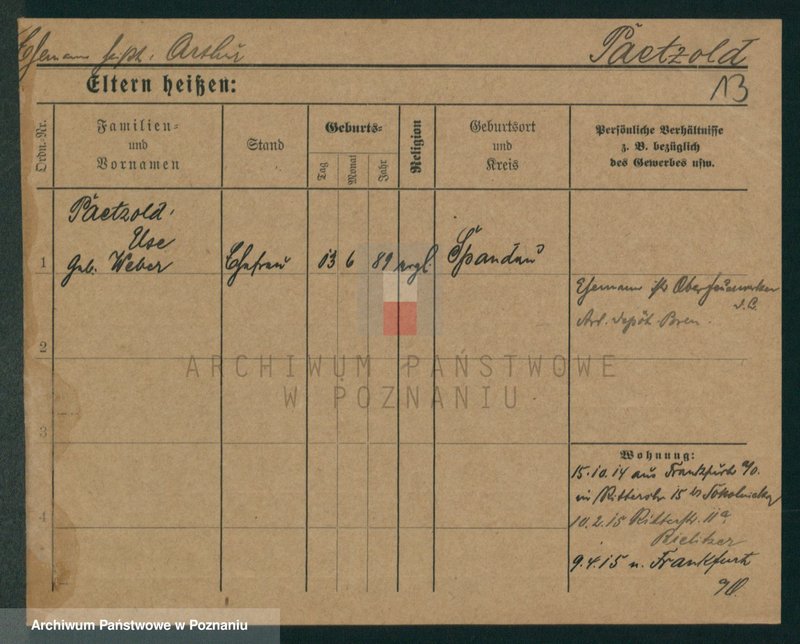 Ehemann heißt: Arthur Paetzold
13
Eltern heißen:
Ordn.-Nr.
Familien-
und
Vornamen
Stand
Geburts-
Tag
Monat
Jahr
Religion
Geburtsort
und
Kreis
Persönliche Verhältnisse
z. B. bezüglich
des Gewerbes usw.
Paetzold,
geb. Weber
1
Ehefrau
13 6 89 evgl.
Spandau
Ehemann ist Oberfeuerwerker
Art. Depôt
2
3
4
Wohnung:
15.10.14 aus Frankfurt a/O.
in Ritterstr. 15
10.2.15 Ritterstr. 11a
9.4.15 n. Frankfurt
a/O.
ARCHIWUM PAŃSTWOWE
W POZNANIU
Archiwum Państwowe w Poznaniu